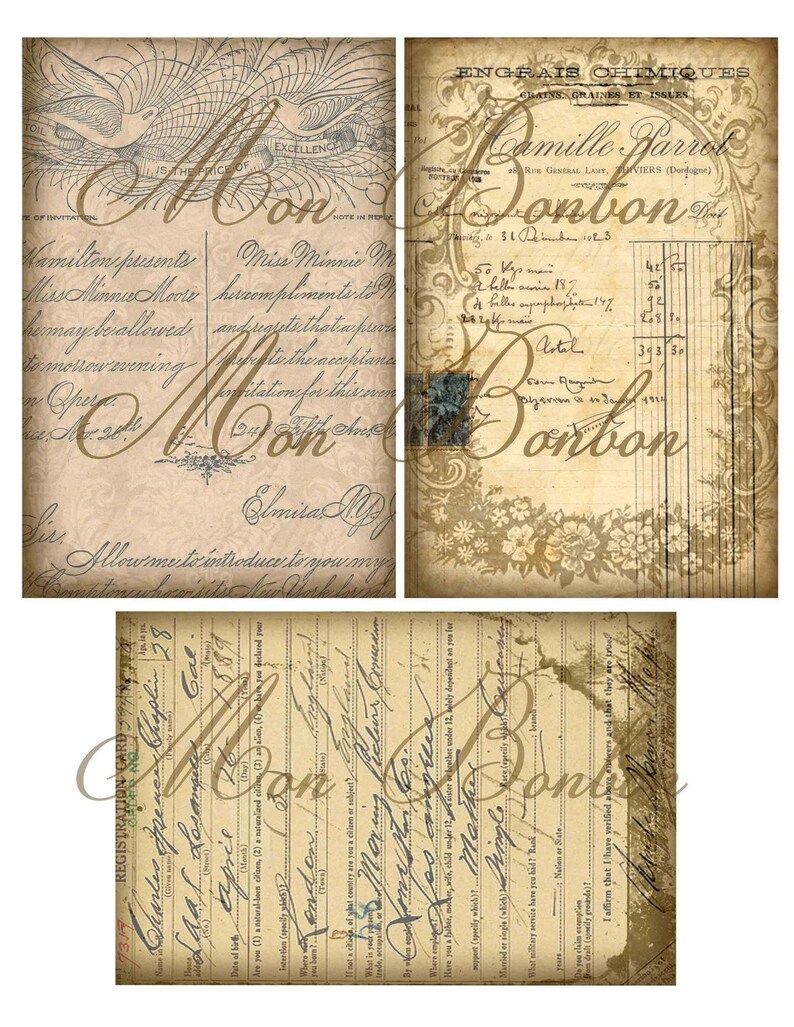 TOIL
IS THE PRICE OF
EXCELLENCE
TE OF INVITATION.
NOTE IN REPLY
Hamilton presents
Miss Minnie Moore
he may be allowed
to morrow evening
n Opera.
ce, Nov. 21st
Miss Minnie M
her compliments to M
and regrets that a previo
prevents the acceptance
invitation for this even
248 Fifth Ave.
Elmira, N.Y. J
Sir.
Allow me to introduce to you my
Compton who visits New York for
Mon Bonbon
Mon Bonbon
ENGRAIS CHIMIQUES
GRAINS, GRAINES ET ISSUES
Camille Parrot
28, Rue Général Lamy, THIVIERS (Dordogne)
Registre du Commerce
NONTRON
Doit
Thiviers, le 31 Décembre 1923
50 Kgs maïs 42 50
2 balles scories 18% 50
4 balles superphosphate 14% 92
232 Kgs maïs 208 80
Total 393 30
Mon Bonbon
REGISTRATION CARD
ORDER NO.
Age, in yrs.
Charles Spencer Chaplin 28
Name in (Given name) (Family name)
Los Angeles Cal.
Home (No.) (Street) (City) (State)
April 16 1889
Date of birth (Month) (Day) (Year)
Are you (1) a natural-born citizen, (2) a naturalized citizen, (3) an alien, (4) or have you declared your
intention (specify which)?
London England
Where were you born? (Town) (State) (Nation)
If not a citizen, of what country are you a citizen or subject? England
What is your present trade, occupation, or Moving Picture Comedian
By whom employed? Lone Star Co.
Where employed? Los Angeles
Have you a father, mother, wife, child under 12, or a sister or brother under 12, solely dependent on you for
support (specify which)? Mother
Married or single (which)? Single Race (specify which)? Caucasian
What military service have you had? Rank branch
years ; Nation or State
Do you claim exemption from draft (specify grounds)?
I affirm that I have verified above answers and that they are true.